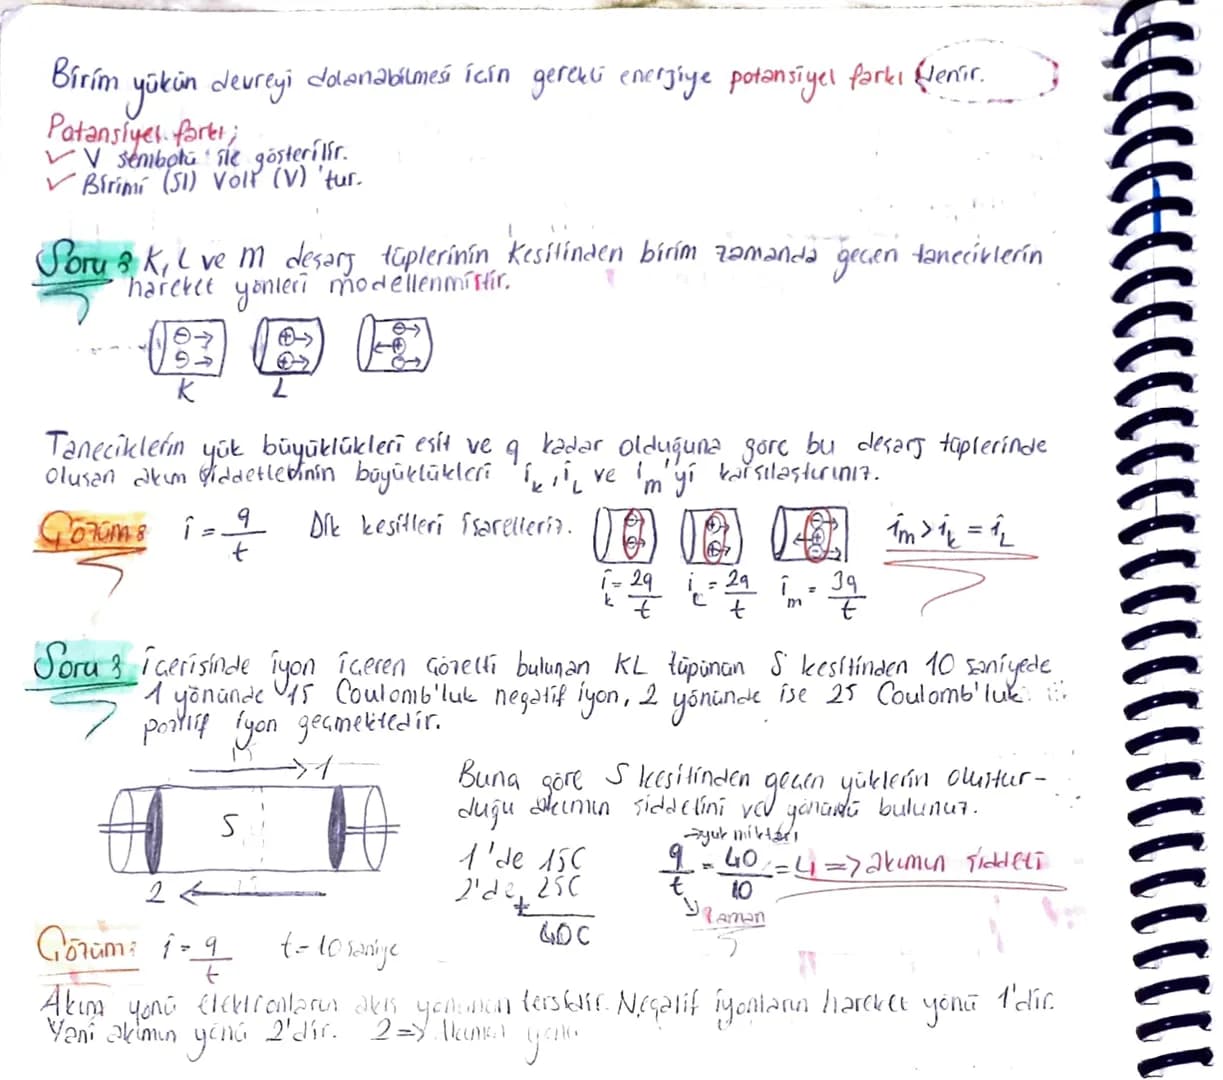 Birim yükün devreyi dolanabilmesi için gerekli enerjiye potansiyel farkı denir.
Potansiyel farkı;
✓ V sembolü ile gösterilir.
✓ Birimi (SI) Volt (V) 'tur.
Soru: K, L ve M deşarj tüplerinin kesitinden birim zamanda geçen taneciklerin
hareket yönleri modellenmiştir.
K L
Taneciklerin yük büyüklükleri eşit ve q kadar olduğuna göre bu deşarj tüplerinde
oluşan akım şiddetlerinin büyüklükleri iK, iL ve iM'yi karşılaştırınız.
Çözüm: i = q/t Dik kesitleri işaretleriz. iM > iK = iL
iK = 2q/t iL = 2q/t iM = 3q/t
Soru: İçerisinde iyon içeren çözelti bulunan KL tüpünün S kesitinden 10 saniyede
1 yönünde 15 Coulomb'luk negatif iyon, 2 yönünde ise 25 Coulomb'luk
pozitif iyon geçmektedir.
→ 1
S
2 ←
Buna göre S kesitinden geçen yüklerin oluştur-
duğu akımın şiddetini ve yönünü bulunuz.
→ yük miktarı
1'de 15C
2'de + 25C
40C
q/t = 40/10 = 4 => akımın şiddeti
zaman
Çözüm: i = q/t t = 10 saniye
Akım yönü elektronların akış yönünün tersidir. Negatif iyonların hareket yönü 1'dir.
Yani akımın yönü 2'dir. 2 => Akımın yönü